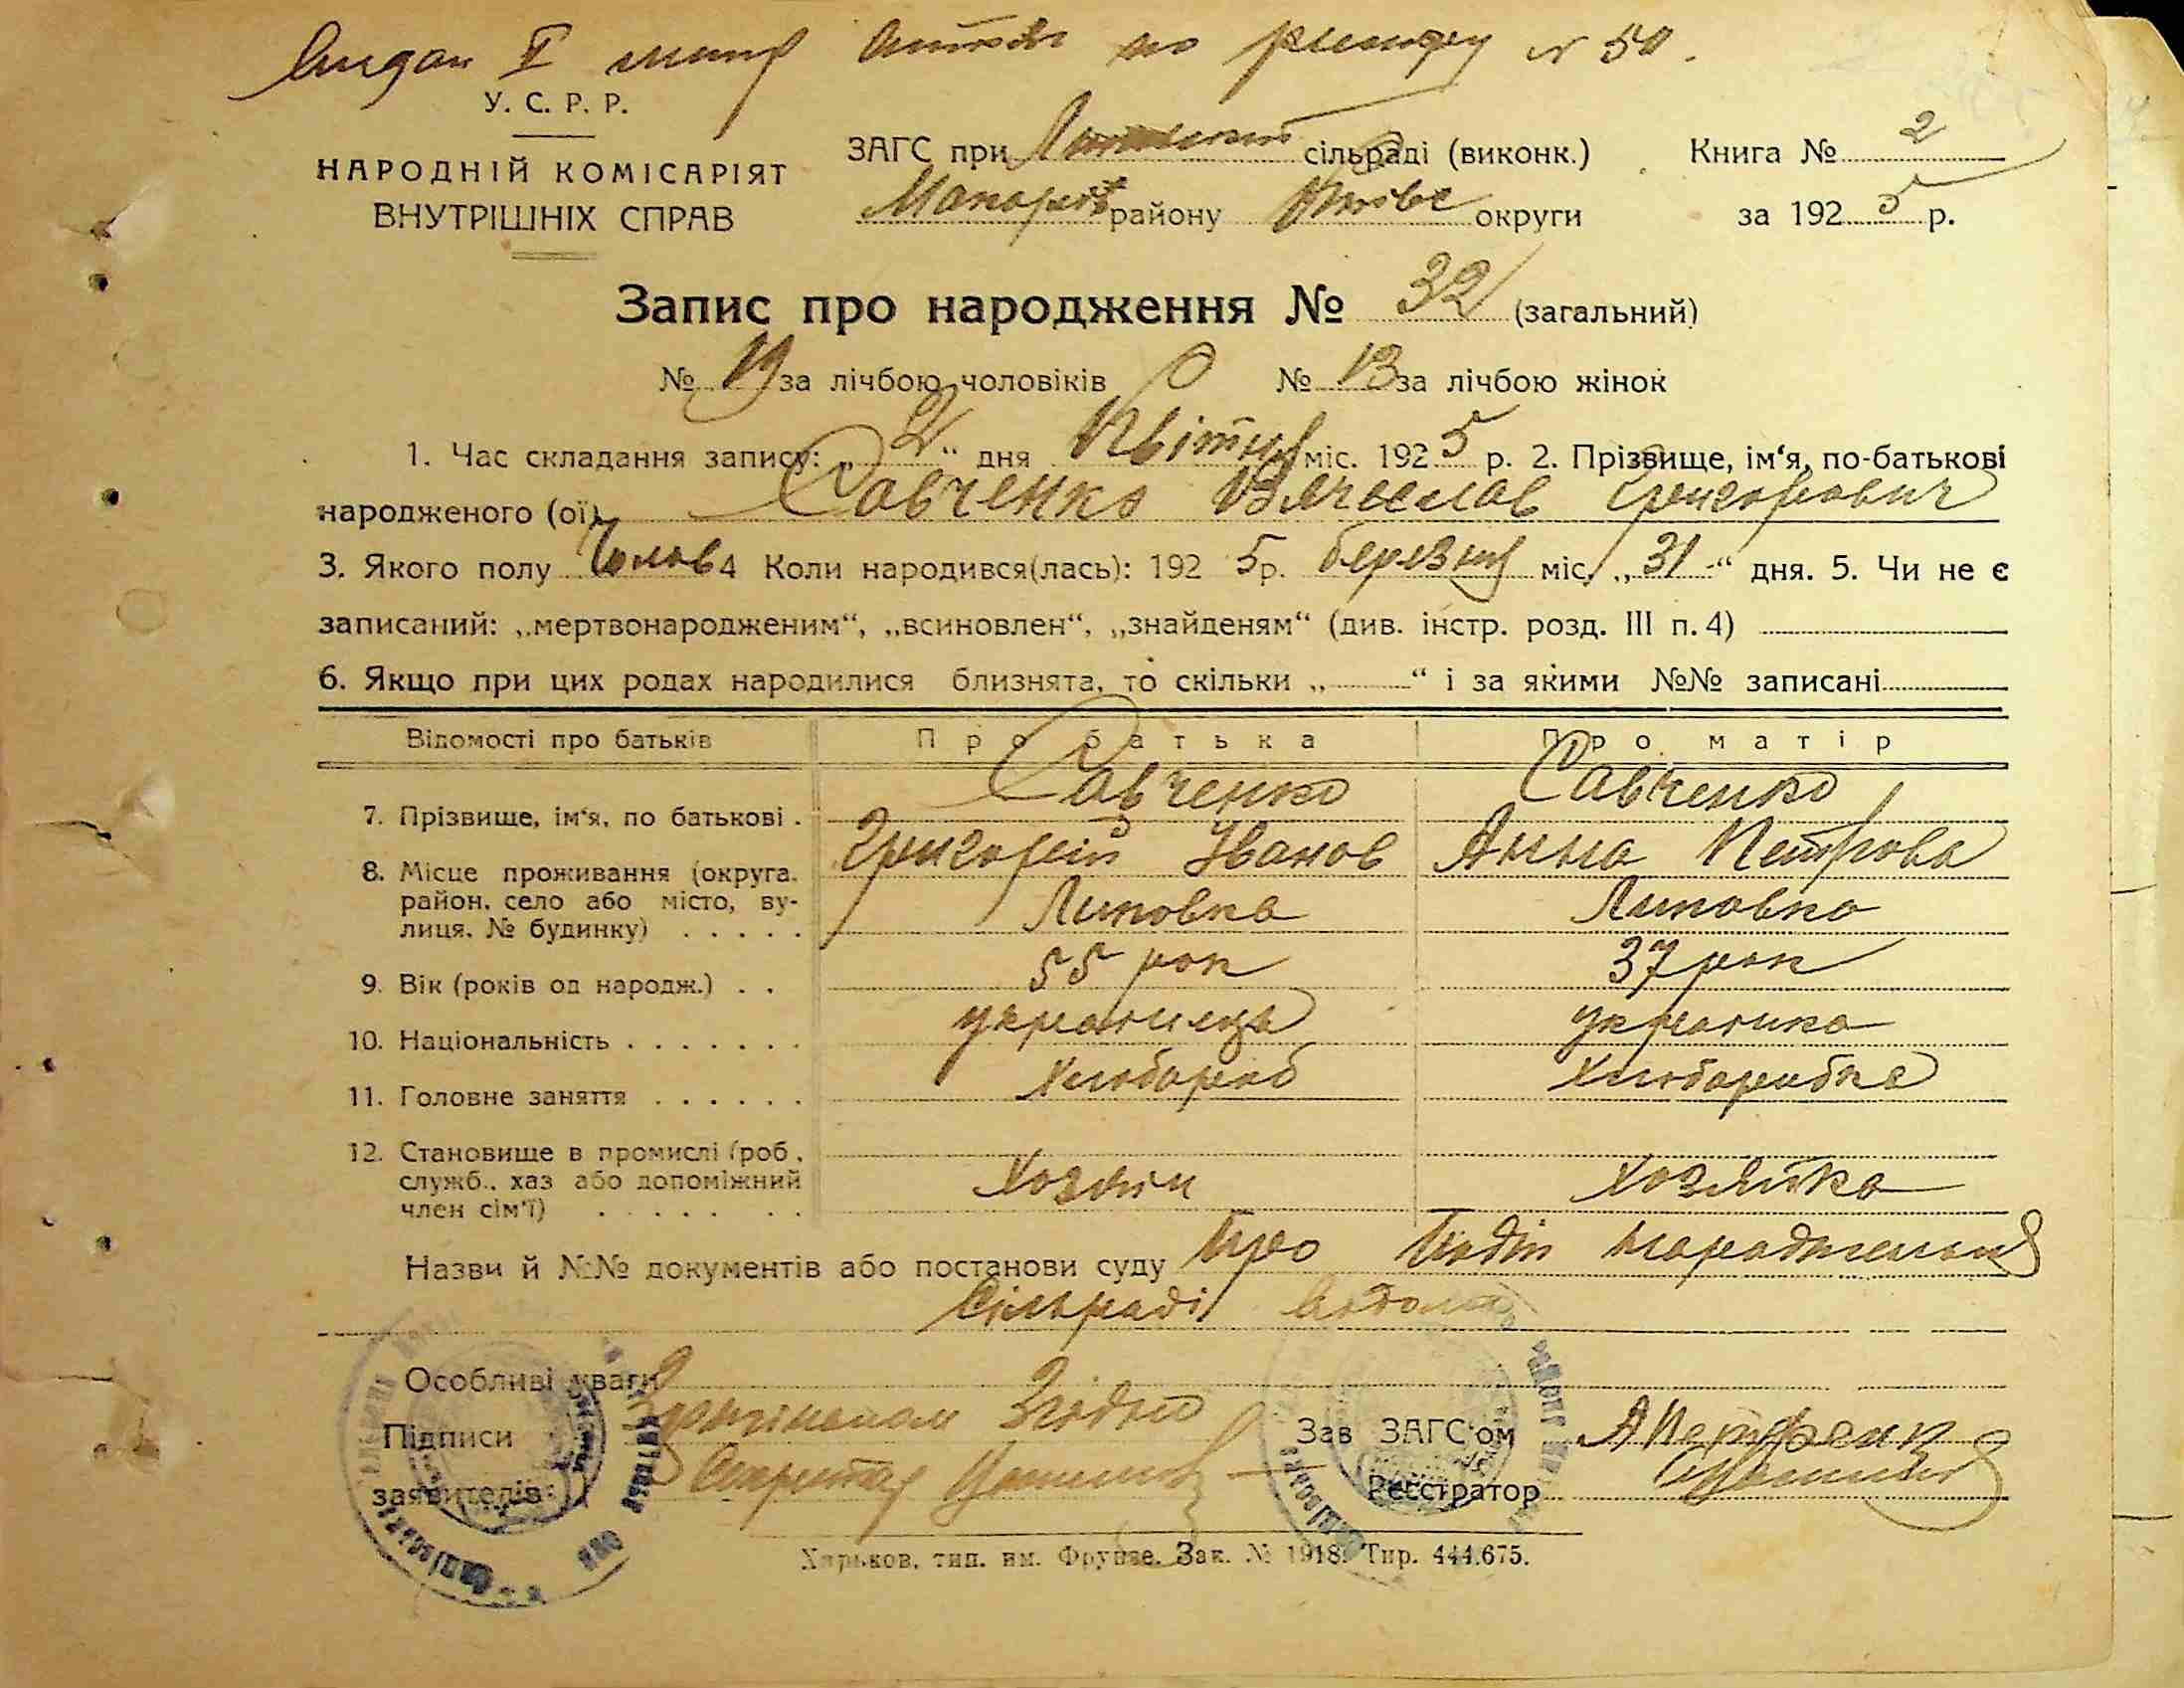 Видан II витяг по реєстру № 50.
У. С. Р. Р.
НАРОДНІЙ КОМІСАРІЯТ
ВНУТРІШНІХ СПРАВ
ЗАГС при сільраді (виконк.)
Макарів району Київс округи
Книга № 2
за 1925 р.
Запис про народження № 32 (загальний)
№ 19 за лічбою чоловіків № 13 за лічбою жінок
1. Час складання запису: „2“ дня Квітня міс. 1925 р. 2. Прізвище, ім‘я, по-батькові
народженого (ої) Савченко Вячеслав Григорович
3. Якого полу Чолов 4 Коли народився(лась): 1925р. березня міс. „31“ дня. 5. Чи не є
записаний: „мертвонародженим“, „всиновлен“, „знайденям“ (див. інстр. розд. III п. 4)
6. Якщо при цих родах народилися близнята, то скільки „ “ і за якими №№ записані
Відомості про батьків Про батька Про матір
7. Прізвище, ім‘я, по батькові . Савченко Савченко
Григорій Іванов Анна Петрова
8. Місце проживання (округа,
район, село або місто, ву-
лиця, № будинку) . . . . . Липовка Липовка
9. Вік (років од народж.) . . 55 рок 37 рок
10. Національність . . . . . . . украинець украинка
11. Головне заняття . . . . . . Хлюбороб Хлюборобка
12. Становище в промислі (роб.,
служб., хаз або допоміжний
член сім‘ї) . . . . . . . Хозяін Хозяйка
Назви й №№ документів або постанови суду Про Подію народження
Сільраді відомо
Особливі уваги
Підписи
заявителів:
Секретар
Зав ЗАГС‘ом
Реєстратор
Харьков, тип. им. Фрунзе. Зак. № 1918. Тир. 444.675.